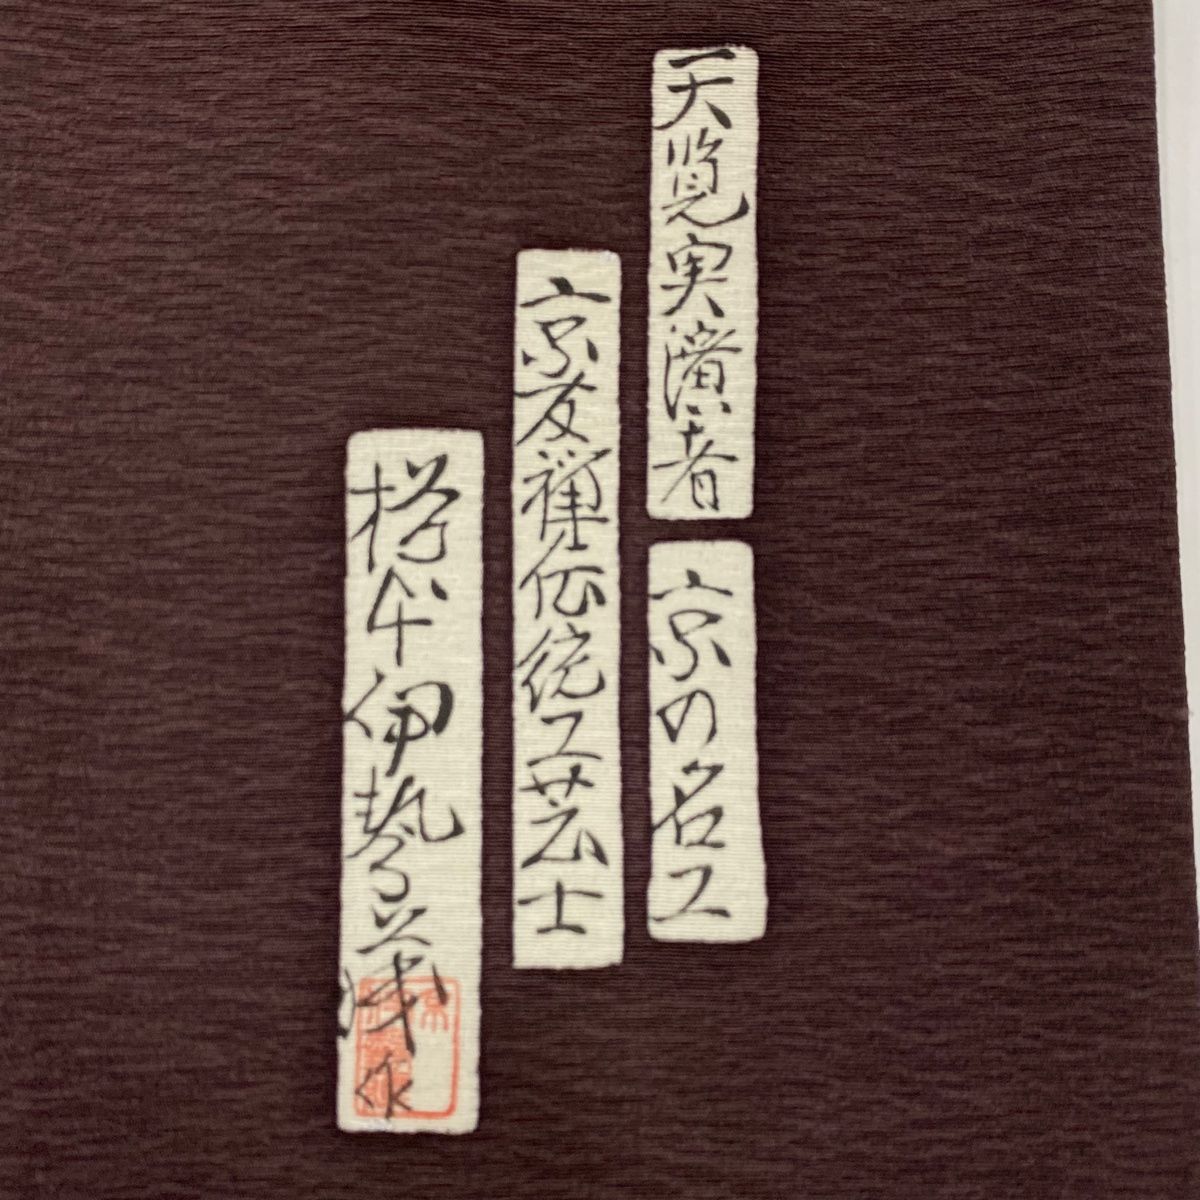 天覧実演者
京の名工
京友禅伝統工芸士
伊勢義作